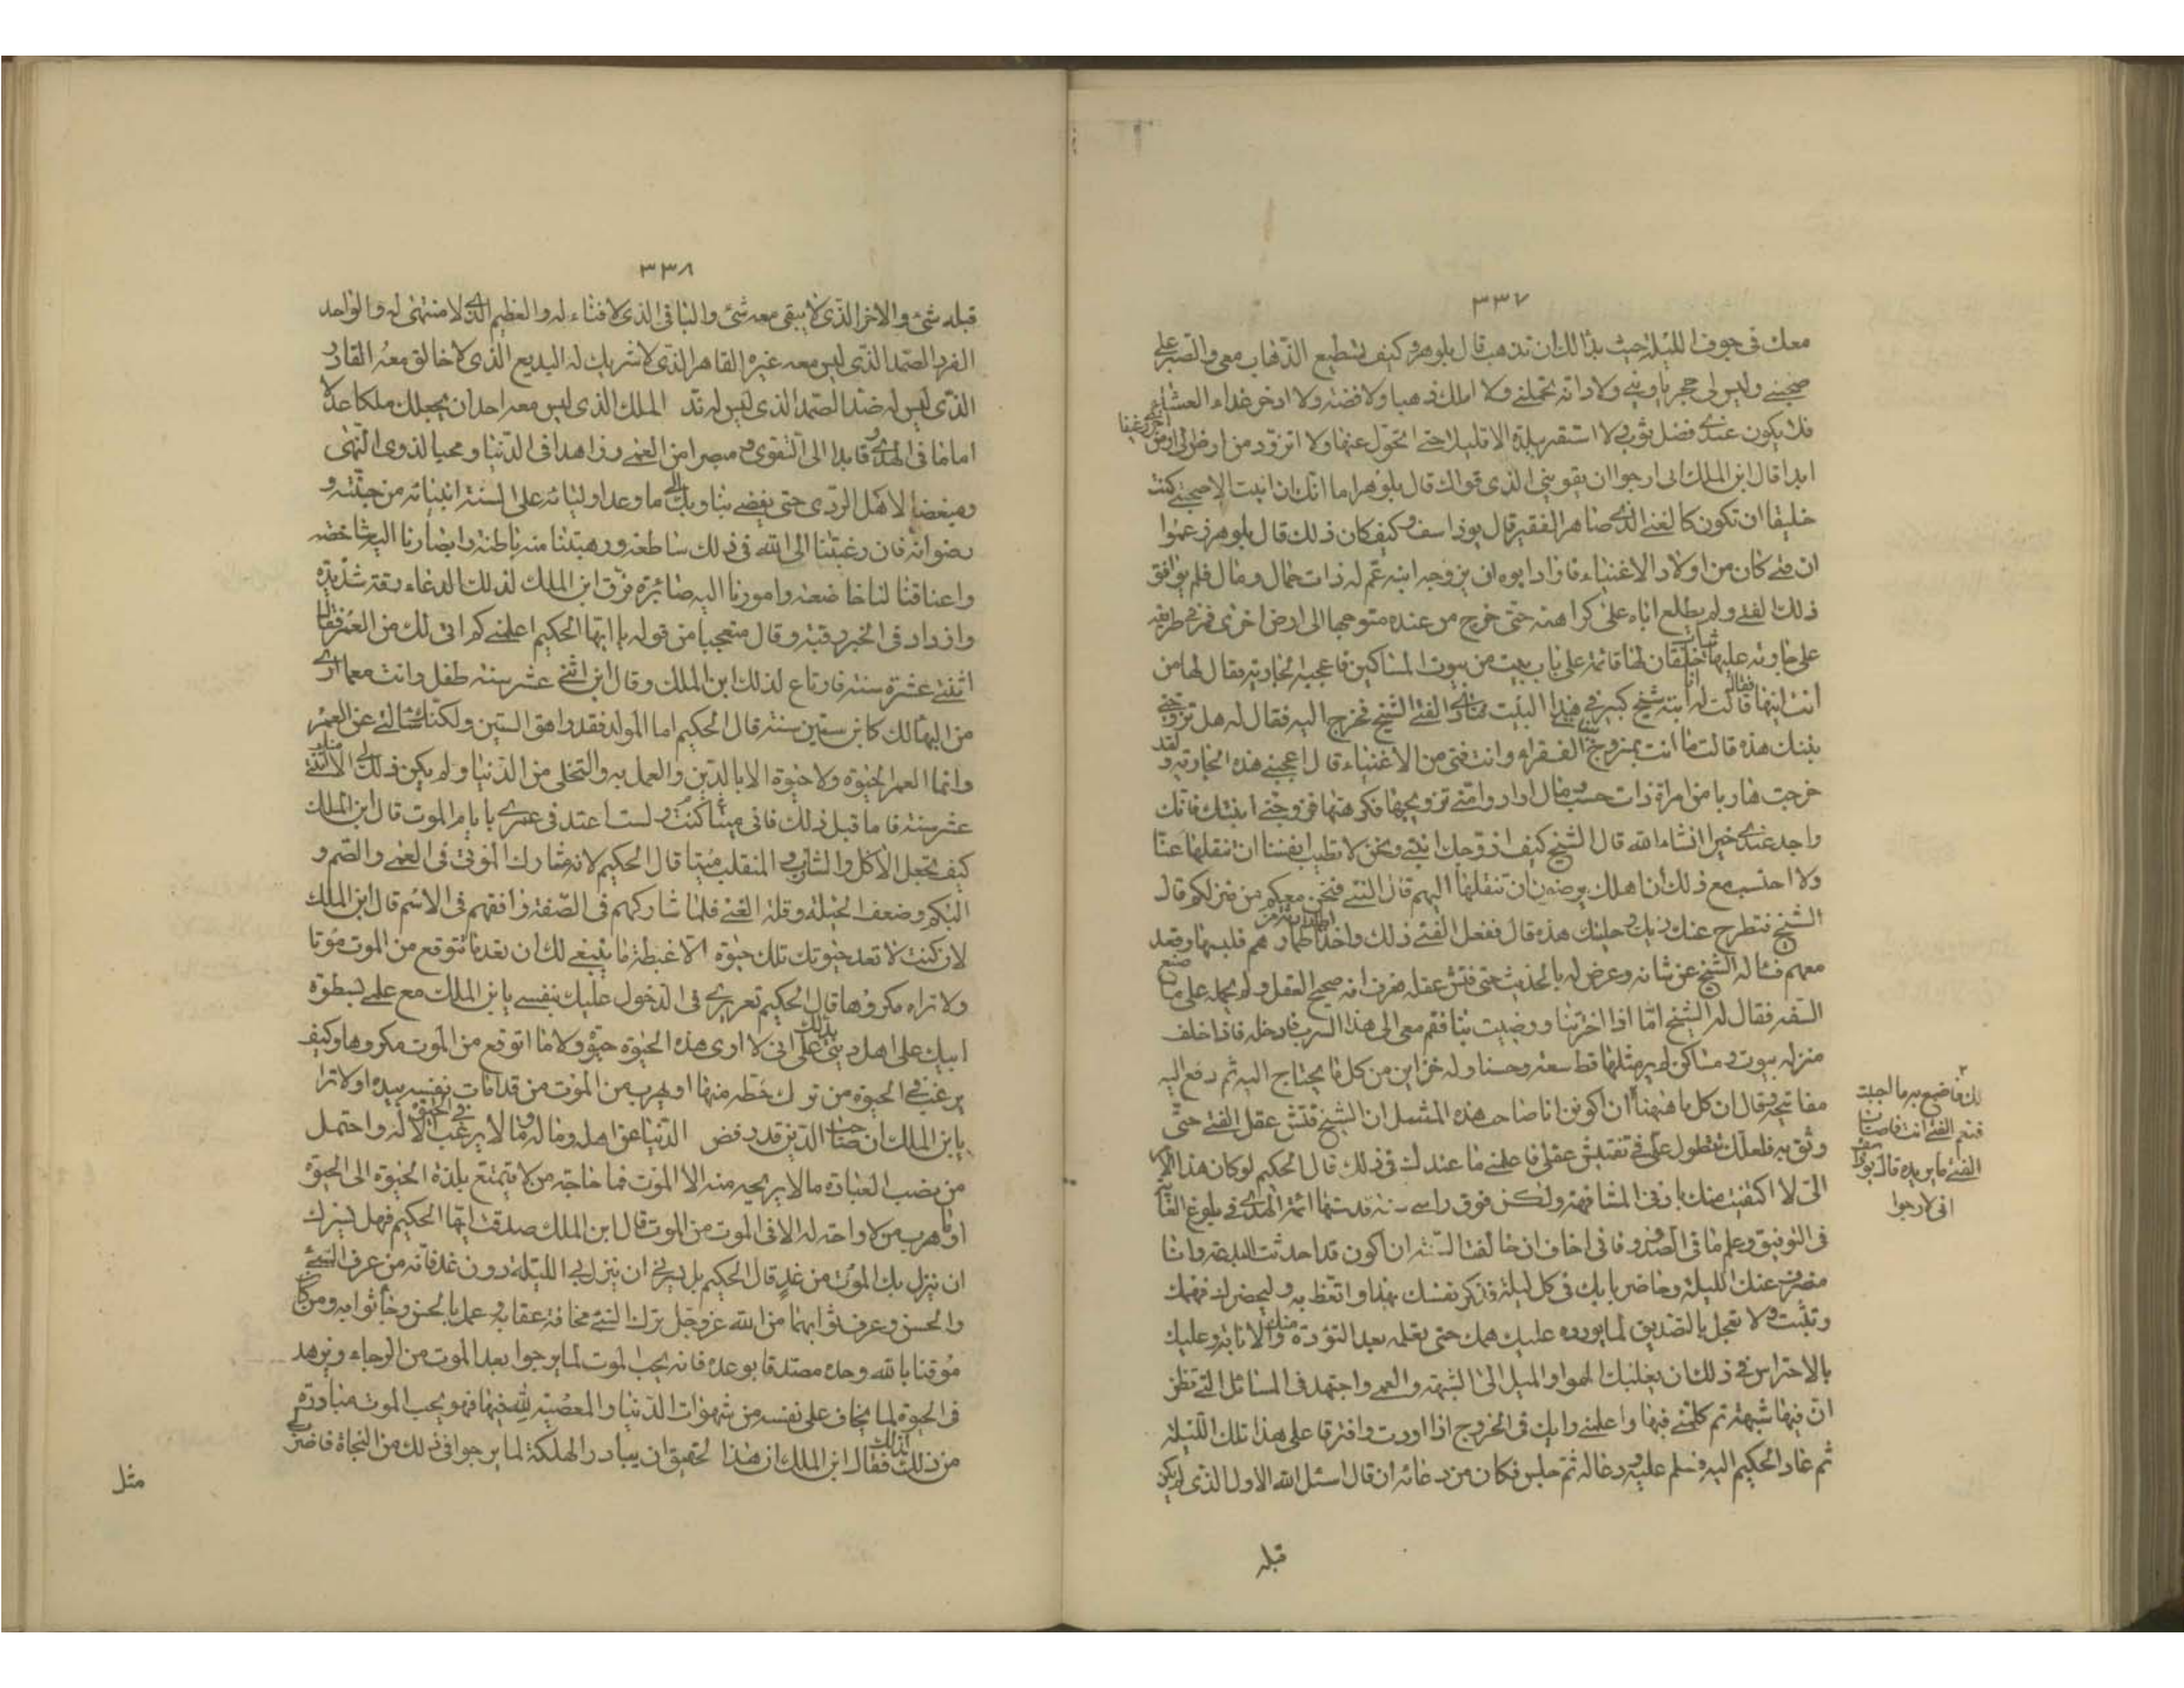 ٣٣٧
معك في جوف الليلة حيث بدا لك ان تذهب قال بلوهر وكيف تستطيع الذهاب معي والصبر على
صحبتي وليس لي حجر ياويني ولا دابة تحملني ولا املك ذهبا ولا فضة ولا ادخر غداء لعشاء
فلا يكون عندي فضل ثوب ولا استقر ببلدة الا قليلا حتى اتحول عنها ولا اتزود من ارض الى ارض
ابدا قال ابن الملك اني ارجوا ان يقويني الذي قواك قال بلوهر اما انك ان ابيت الا صحبتي كنت
خليقا ان تكون كالغني الذي صاهر الفقير قال يوذاسف وكيف كان ذلك قال بلوهر زعموا
ان فتى كان من اولاد الاغنياء فاراد ابوه ان يزوجه ابنة عم له ذات جمال ومال فلم يوافق
ذلك الفتى ولم يطلع اباه على كراهته حتى خرج من عنده متوجها الى ارض اخرى فمر في طريقه
على جارية عليها ثياب خلقان لها قائمة على باب بيت من بيوت المساكين فاعجبته الجارية فقال لها من
انت ايتها فقالت انا ابنة شيخ كبير في هذا البيت فنادى الفتى الشيخ فخرج اليه فقال له هل تزوجني
بنتك هذه قالت ما انت بمتزوج الفقراء وانت فتى من الاغنياء قال اعجبتني هذه الجارية ولقد
خرجت هاربا من امراة ذات حسب ومال ارادوا مني تزويجها فكرهتها فزوجني ابنتك فانك
واجد عندي خيرا انشاءالله قال الشيخ كيف ازوجك ابنتي ونحن لا تطيب انفسنا ان تنقلها عنا
ولا احتسب مع ذلك ان اهلك يرضون ان تنقلها اليهم قال الفتى فنحن معكم من منزلكم قال
الشيخ فتطرح عنك زيك وحليتك هذه قال ففعل الفتى ذلك واخذ اطمارا رثة من اطمارهم فلبسها وقعد
معهم فساله الشيخ عن شانه وعرض له بالحديث حتى فتش عقله فعرف انه صحيح العقل ولم يحمله على ما صنع
السفه فقال له الشيخ اما اذا اخترتنا ورضيت بنا فقم معي الى هذا السرب فادخله فاذا خلف
منزله بيوت ومساكن لم ير مثلها قط سعة وحسنا وله خزاين من كل ما يحتاج اليه ثم دفع اليه
مفاتيحه وقال ان كل ما ههنا لك فاصنع به ما احببت فنعم الفتى انت فاصاب الفتى ما يريده قال يوذاسف اني لارجوا ان اكون انا صاحب هذه المثل ان الشيخ فتش عقل الفتى حتى
وثق به فلعلك تطول علي في تفتيش عقلي فاعلمني ما عندك في ذلك قال الحكيم لو كان هذا الامر
الي لا اكتفيت منك بادنى المشافهة ولكن فوق راسي سنة قد سنها ائمة الهدى في بلوغ الغاية
في التوفيق وعلم ما في الصدور فاني اخاف ان خالفت السنة ان اكون قد احدثت البدعة وانا
منصرف عنك الليلة وحاضر بابك في كل ليلة ففكر نفسك بهذا واتعظ به وليحضرك فهمك
وتثبت ولا تعجل بالتصديق لما يورده عليك همك حتى تعلمه بعد التؤدة والاناة وعليك
بالاحتراس في ذلك ان يغلبك الهوا والميل الى الشبهة والعمى واجتهد في المسائل التي تظن
ان فيها شبهة ثم كلمني فيها واعلمني رايك في الخروج اذا اردت وافترقا على هذا تلك الليلة
ثم عاد الحكيم اليه فسلم عليه ودعا له ثم جلس فكان من دعائه ان قال اسئل الله الاول الذي لم يكن
قبله
٣٣٨
قبله شئ والاخر الذي لا يبقى معه شئ والباقي الذي لا فناء له والعظيم الذي لا منتهى له والواحد
الفرد الصمد الذي ليس معه غيره القاهر الذي لا شريك له البديع الذي لا خالق معه القادر
الذي ليس له ضد الصمد الذي ليس له ند الملك الذي ليس معه احد ان يجعلك ملكا عدلا
اماما في الهدى وقايدا الى التقوى ومبصرا من العمى وزاهدا في الدنيا ومحبا لذوي النهى
ومبغضا لاهل الردى حتى يفضي بنا وبك الى ما وعد اوليائه على السنة انبيائه من جنته و
رضوانه فان رغبتنا الى الله في ذلك ساطعة ورهبتنا منه باطنة وابصارنا اليه شاخصة
واعناقنا لنا خاضعة وامورنا اليه صائرة فرق ابن الملك لذلك الدعاء رقة شديدة
وازداد في الخير رقبة وقال متعجبا من قوله يا ايها الحكيم اعلمني كم اتى لك من العمر فقال
اثنتي عشرة سنة فارتاع لذلك ابن الملك وقال ابن اثني عشر سنة طفل وانت مع ما ارى
من الهالك كابن ستين سنة قال الحكيم اما المولد فقد راهق الستين ولكنك سالتني عن العمر
وانما العمر الحيوة ولا حيوة الا بالدين والعمل به والتخلي من الدنيا ولم يكن ذلك لي الا منذ اثنتي
عشر سنة فاما قبل ذلك فاني كنت ميتا ولست اعتد في عمري بايام الموت قال ابن الملك
كيف تجعل الاكل والشارب والمنقلب ميتا قال الحكيم لانه شارك الموتى في العمى والصم و
البكم وضعف الحيلة وقلة الغنى فلما شاركهم في الصفة وافقهم في الاسم قال ابن الملك
لان كنت لا تعد حيوتك تلك حيوة الا غبطة ما ينبغي لك ان تعد ما تتوقع من الموت موتا
ولا تراه مكروها قال الحكيم تعريري في الدخول عليك بنفسي يابن الملك مع علمي لسطوة
ابيك على اهل ديني يدلك على اني لا ارى هذه الحيوة حيوة ولا ما اتوقع من الموت مكروها وكيف
يرغب في الحيوة من ترك حظه منها او يهرب من الموت من قد امات نفسه بيده اولا ترا
يابن الملك ان صاحب الدين قد رفض الدنيا عن اهله وماله وما لا يرغب في الحيوة الا له واحتمل
من نصب العبادة مالا يريحه منه الا الموت فما حاجة من لا يتمتع بلذة الحيوة الى الحيوة
او ما هرب من لا راحة له الا في الموت من الموت قال ابن الملك صدقت ايها الحكيم فهل يسرك
ان ينزل بك الموت من غد قال الحكيم بل يسرني ان ينزل بي الليلة دون غد فانه من عرف السيئ
والحسن وعرف ثوابهما من الله عز وجل ترك السيئ مخافة عقابه وعمل بالحسن رجاء ثوابه ومن كان
موقنا بالله وحده مصدقا بوعده فانه يحب الموت لما يرجوا بعد الموت من الرجاء ويزهد
في الحيوة لما يخاف على نفسه من شهوات الدنيا والمعصية لله فيها فهو يحب الموت مبادرة
من ذلك فقال ابن الملك ان هذا لحقيق ان يبادر الهلكة لما يرجوا في ذلك من النجاة فاضرب لي
مثل